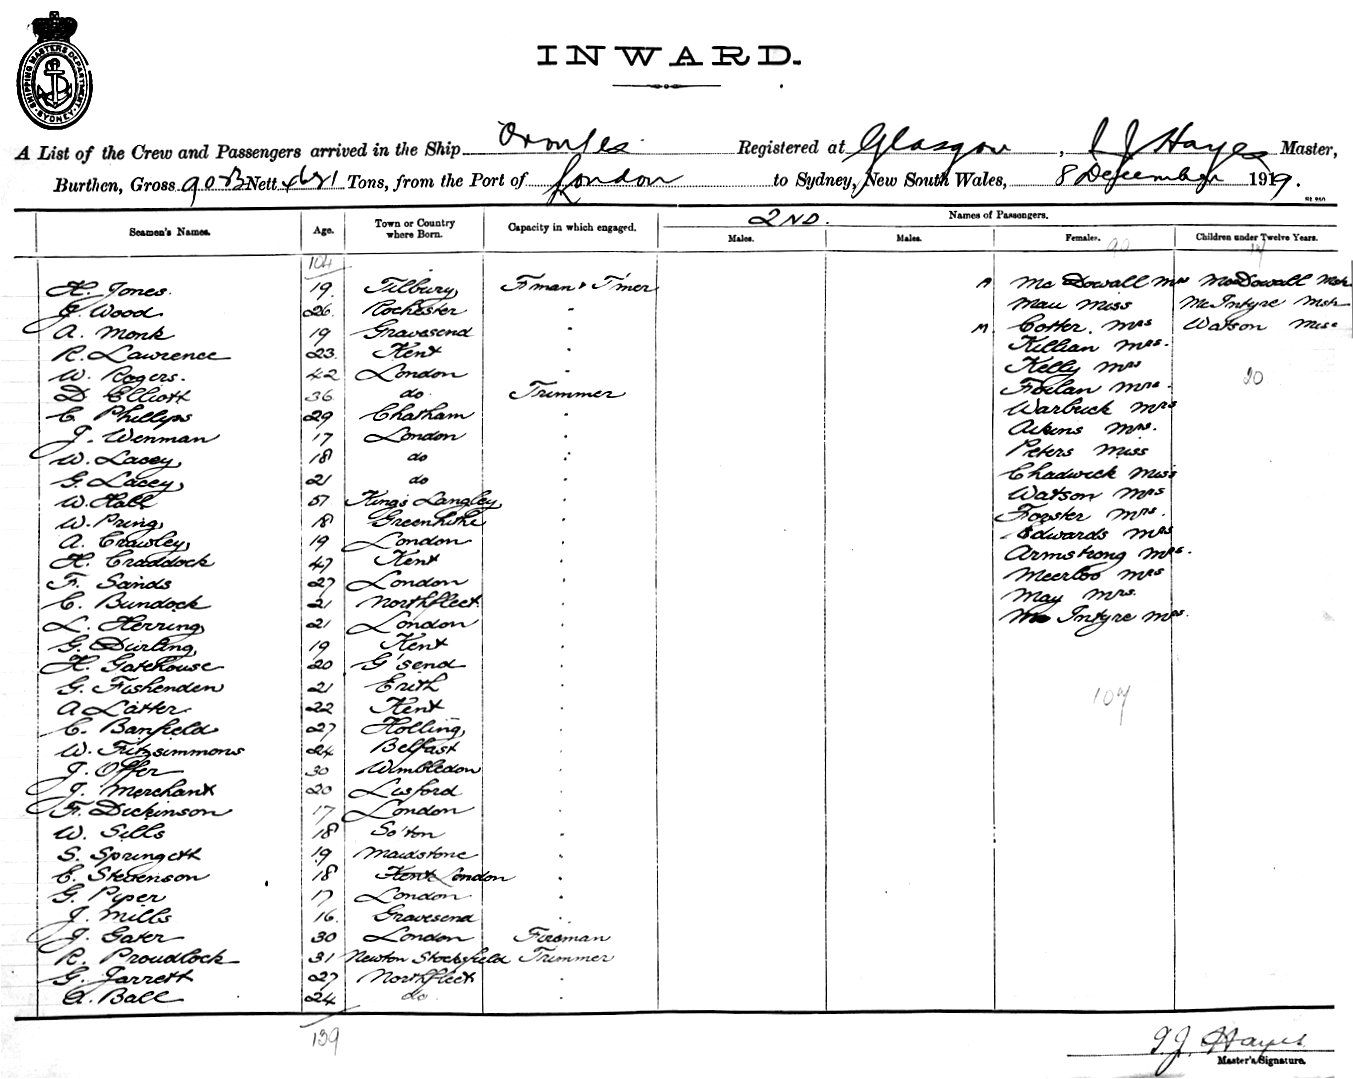 SHIPPING MASTERS DEPARTMENT SYDNEY
INWARD.
A List of the Crew and Passengers arrived in the Ship Orontes Registered at Glasgow, J J Hayes Master,
Burthen, Gross Nett Tons, from the Port of London to Sydney, New South Wales, 8 December 1919.
Seamen's Names. Age. Town or Country where Born. Capacity in which engaged. 2ND. Names of Passengers.
Males. Males. Females. 90 Children under Twelve Years.
104
H. Jones. 19 Tilbury Fman & T'mer Mc Dowall Mrs McDowall Mstr
J. Wood 26 Rochester " Mau Miss McIntyre Mstr
A. Monk 19 Gravesend " M. Cotter. Mrs Watson Miss
R. Lawrence 23 Kent " Killian Mrs.
W. Rogers. 42 London " Kelly Mrs
D Elliott 36 do Trimmer Mrs. 20
C. Phillips 29 Chatham " Warbuck Mrs
J. Wenman 17 London " Akins Mrs.
W. Lacey 18 do " Peters Miss
G. Lacey 21 do " Chadwick Miss
W. Hall 51 Kings Langley " Watson Mrs
W. Pring 18 Greenhithe " Forster Mrs.
A. Crawley 19 London " Edwards Mrs
H. Craddock 47 Kent " Armstrong Mrs.
F. Sands 27 London " Meerloo Mrs
C. Bundock 21 Northfleet " May Mrs.
L. Herring 21 London " McIntyre Mrs.
G. Durling 19 Kent "
H. Gatehouse 20 G'send "
G. Fishenden 21 Erith " 107
A Latter 22 Kent "
C. Banfield 27 Holling "
W. Fitzsimmons 24 Belfast "
J. Offer 30 Wimbledon "
J. Merchant 20 "
F. Dickinson 17 London "
W. Sills 18 So'ton "
S. Springett 19 Maidstone "
E. Stevenson 18 Kent London "
G. Piper 17 London "
J. Mills 16 Gravesend "
J. Gater 30 London Fireman
R. Proudlock 31 Newton Stocksfield Trimmer
G. Jarrett 27 Northfleet "
A. Ball 24 do "
139
J.J. Hayes
Master's Signature.